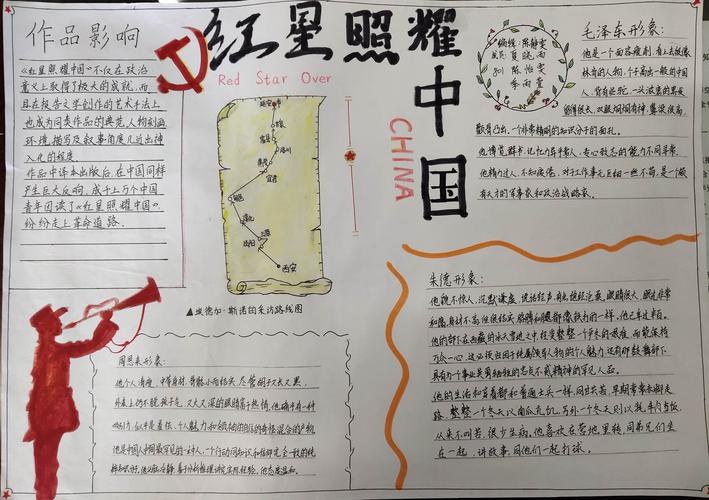 作品影响
《红星照耀中国》不仅在政治
意义上取得了极大的成就,而
且在报告文学创作的艺术手法上
也成为同类作品的典范,人物刻画
环境描写及叙事角度几近出神
入化的程度
作品中译本出版后,在中国同样
产生巨大反响,成千上万个中国
青年因读了《红星照耀中国》
纷纷走上革命道路.
红星照耀中国
Red Star Over
CHINA
延安
洛川
宜君
西安
▲埃德加·斯诺的采访路线图
陈静雯
夏晓雨
陈怡雯
李雨萱
毛泽东形象:
他是一个面容瘦削,看上去很像
林肯的人物,个子高出一般的中国
人,背有些驼,一头浓密的黑发
留得很长,双眼炯炯有神,鼻梁很高,
颧骨凸出,一个非常精明的知识分子的面孔。
他博览群书,记忆力异乎常人,专心致志的能力不同寻常,
他精力过人,不知疲倦,对于工作事无巨细一丝不苟,是一个颇
有天才的军事家和政治战略家。
朱德形象:
他貌不惊人,沉默谦虚,说话轻声,有点饱经沧桑,眼睛很大,眼光非常
和蔼,身材不高但很结实,胳膊和腿都像铁打的一样。他已年过半百。
他的部下在西藏的冰天雪地之中,经受整整一个严冬的艰难,而能保持
万众一心,这必须归因于纯属领导人物的个人魅力,还有那鼓舞部下
具有为个事业英勇牺牲的忠贞不贰精神的罕见人品。
他的生活和穿着都和普通士兵一样,同甘共苦,早期常常赤脚走
路,整整一个冬天以南瓜充饥,另外一个冬天则以牦牛肉当饭,
从来不叫苦,很少生病。他喜欢在营地里转,同弟兄们坐
在一起,讲故事,同他们一起打球。
周恩来形象:
他个人清瘦,中等身材,骨骼小而结实,尽管胡子又长又黑,
外表上仍不脱孩子气,又大又深的眼睛富于热情,他确乎有一种
吸引力,似乎是羞怯,个人魅力和领袖的自信的奇怪混合的产物,
他是中国人中间最罕见的一种人,一个行动同知识和信仰完全一致的纯